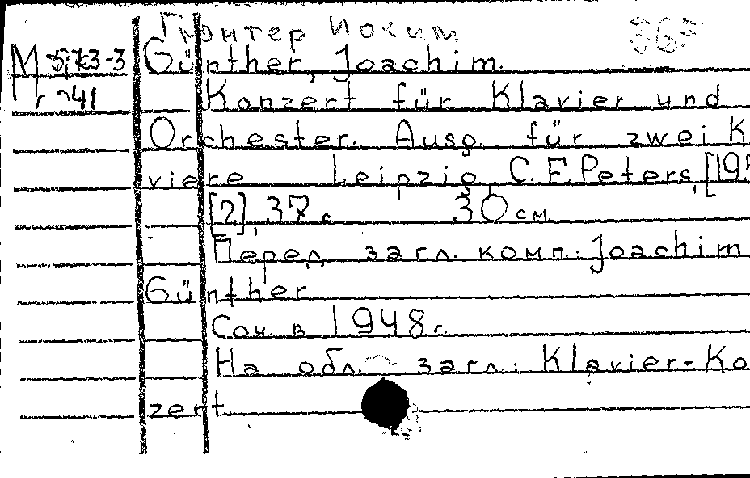 Гюнтер Иохим
Günther, Joachim.
Konzert für Klavier und
Orchester. Ausg. für zwei K
viere Leipzig C. F. Peters, [195
[2], 37 с. 30 см
Перед загл. комп.: Joachim
Günther
Соч. в 1948 г.
На обл. загл.: Klavier-Ko
zert